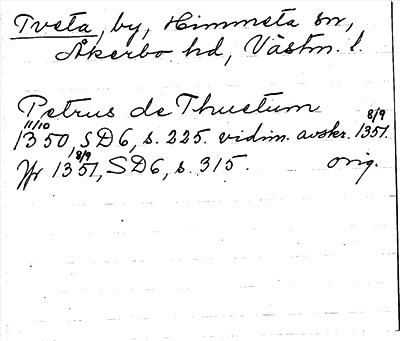 Tveta, by, Himmeta sn,
Åkerbo hd, Västm. l.
Petrus de Thuetum
11/10 1350, SD6, s. 225. vidim. avskr. 8/9 1351.
18/9 1351, SD6, s. 315. orig.